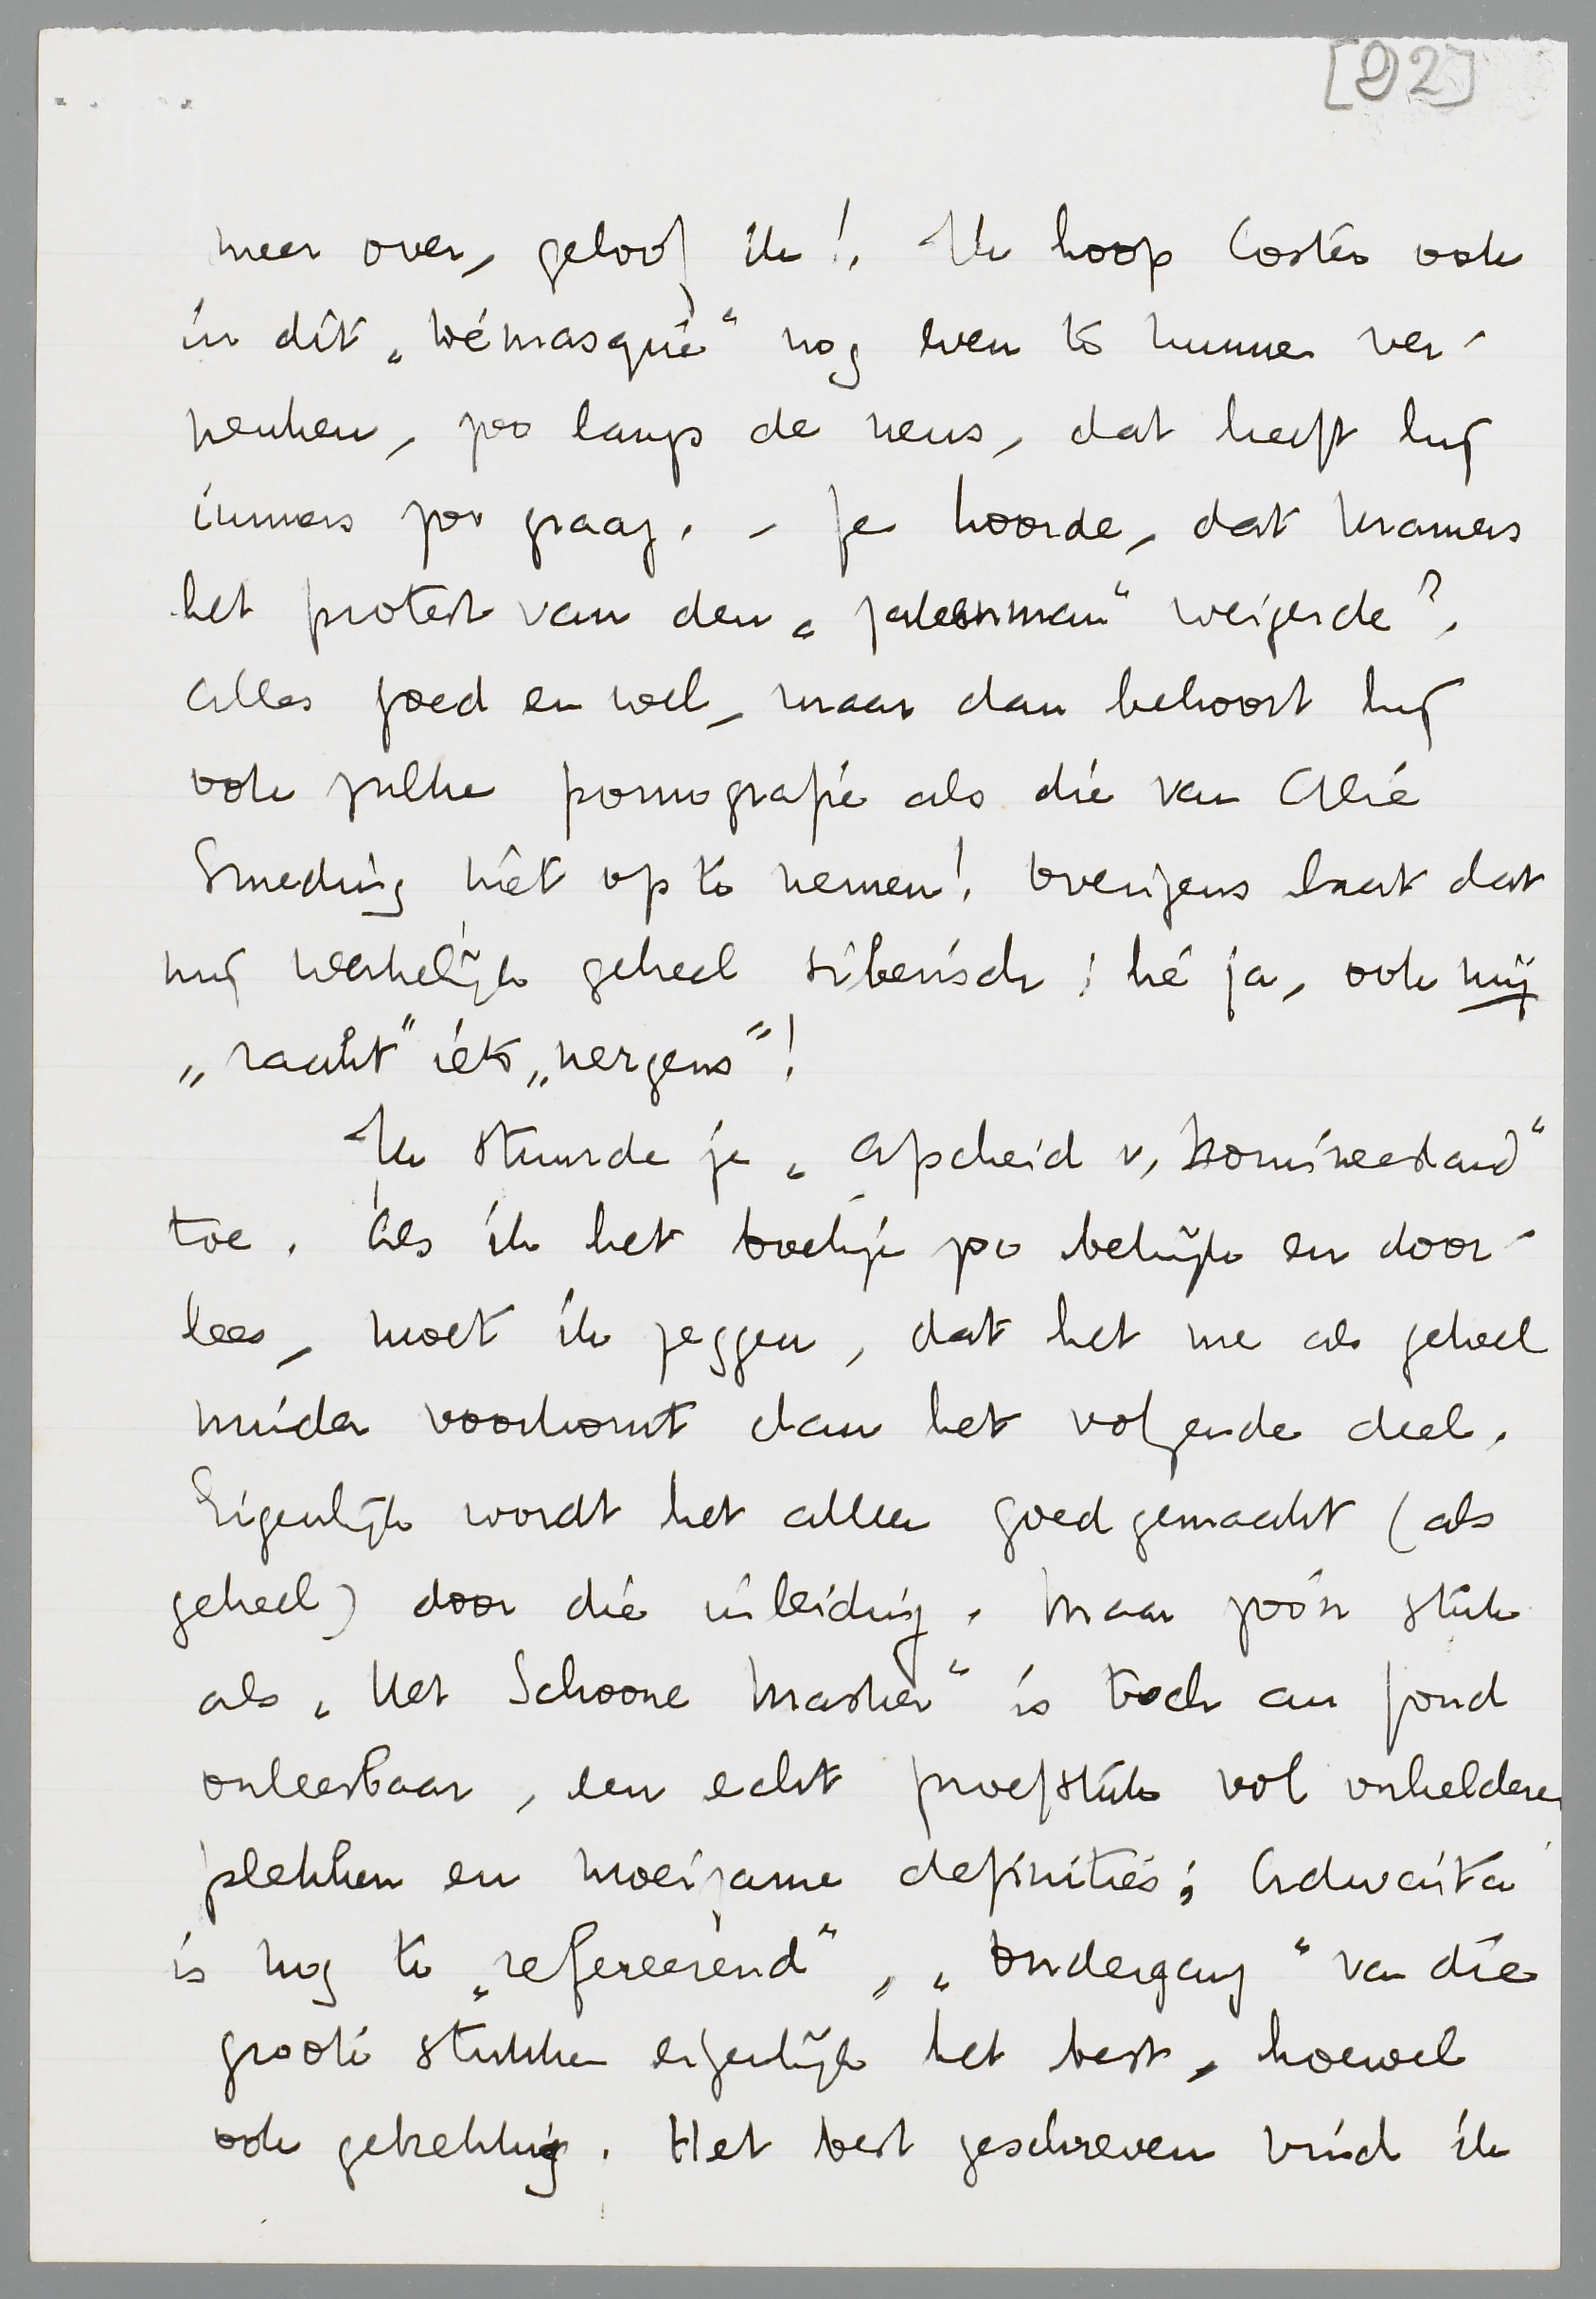 [92]
meer over, geloof ik! Ik hoop Coster ook
in dit „démasqué“ nog even te kunnen ver-
nenken, zoo langs de neus, dat heeft hij
immers zoo graag. – Je hoorde, dat Kramers
het protest van den „zakenman“ weigerde?
Alles goed en wel, maar dan behoort hij
ook zulke pornografie als die van Alie
Smeding niet op te nemen! Overigens laat dat
mij werkelijk geheel siberisch; hè ja, ook mij
„raakt“ iets „nergens“!
Ik stuurde je „Afscheid v. Domineesland“
toe. Als ik het boekje zoo bekijk en door-
lees, moet ik zeggen, dat het me als geheel
minder voorkomt dan het volgende deel.
Eigenlijk wordt het alleen goedgemaakt (als
geheel) door die inleiding. Maar zoo'n stuk
als „Het Schoone Masker“ is toch au fond
onleesbaar, een echt proefstuk vol onheldere
plekken en moeizame definities; Adwaita
is nog te „refereerend“, „Ondergang“ van die
groote stukken eigenlijk het best, hoewel
ook gebrekkig. Het best geschreven vind ik